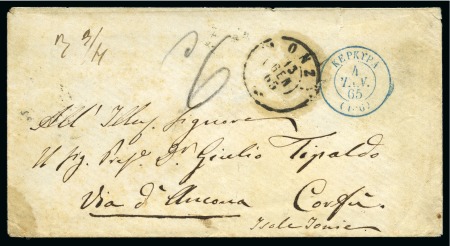 6
13
GEN
65
ΚΕΡΚΥΡΑ
4
ΙΑΝ.
65
(156)
All' Illus. Signore
Il Sig. Prof. Dr. Giulio Tipaldo
Via d'Ancona Corfù.
Isole Jonie